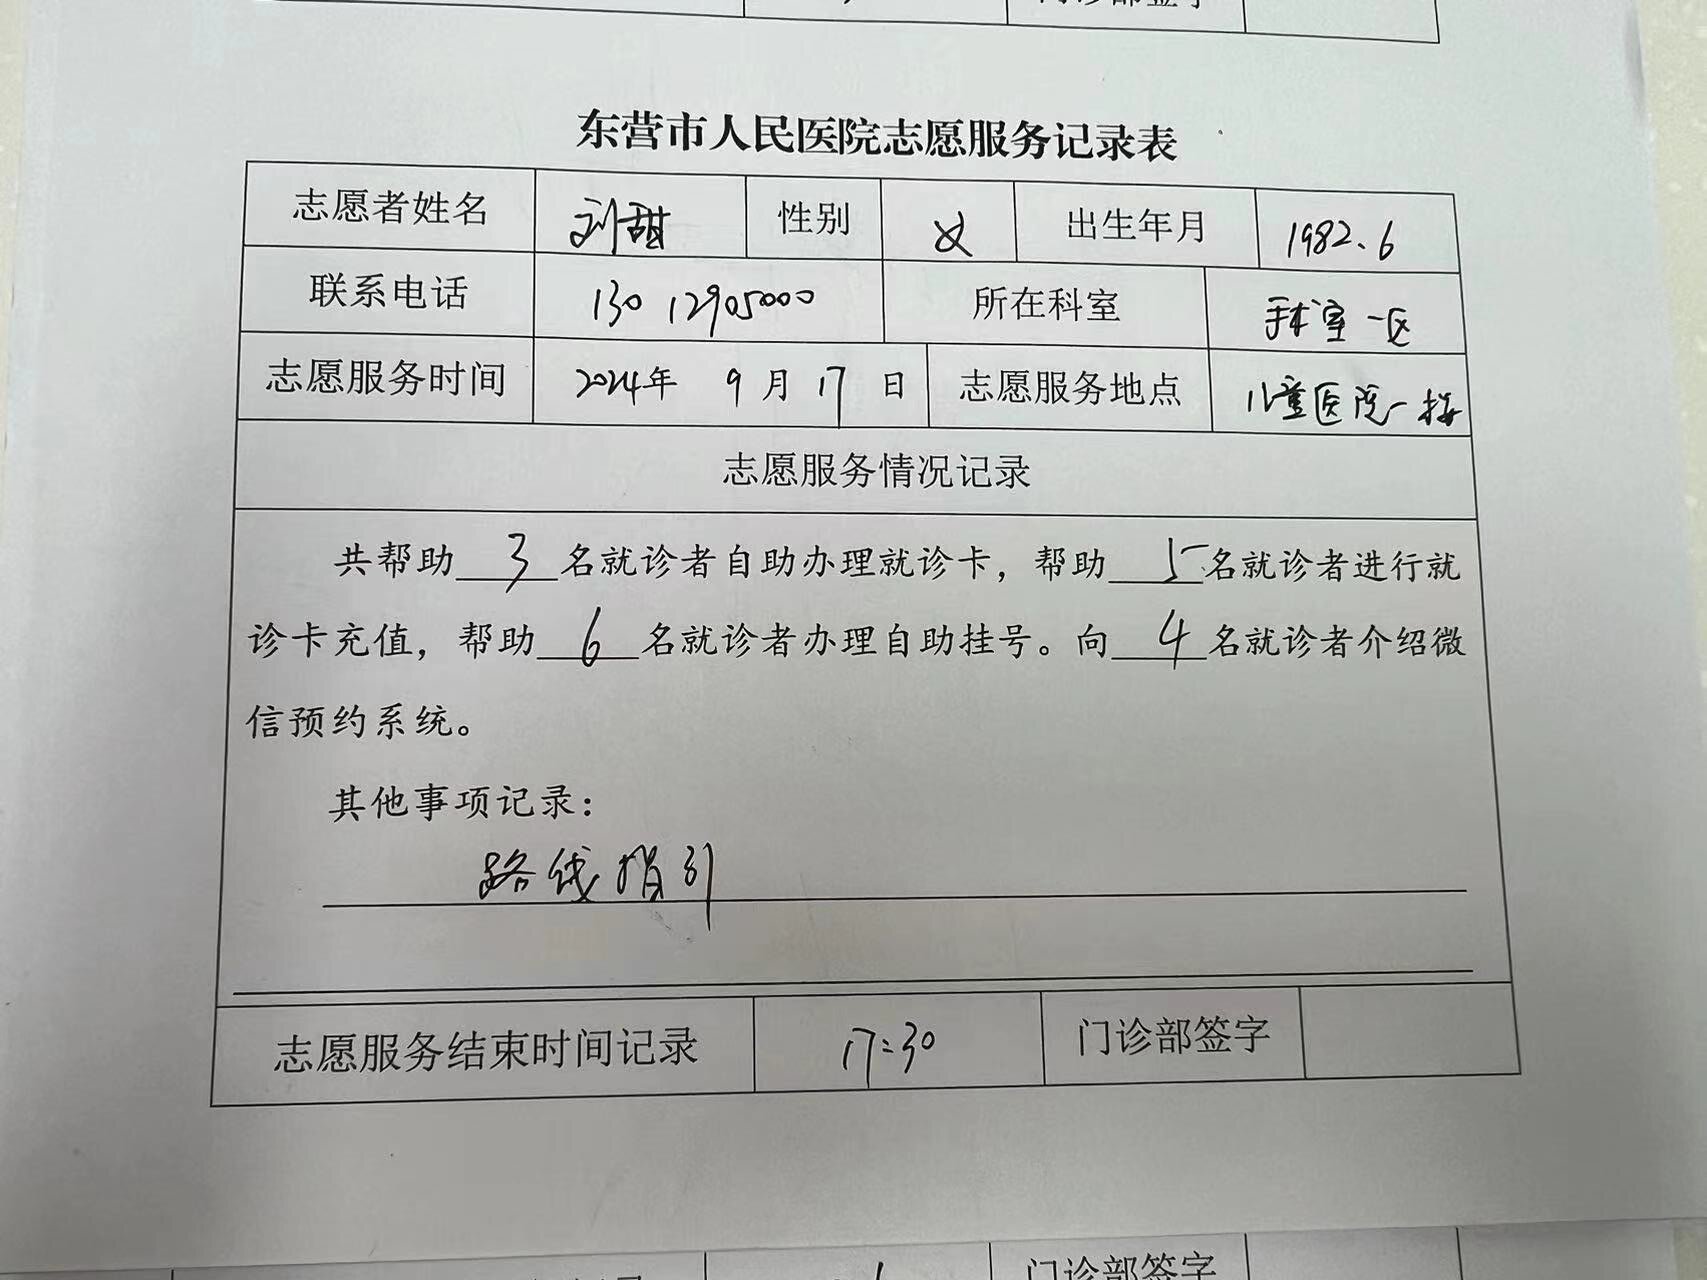 门诊部签字
东营市人民医院志愿服务记录表
志愿者姓名 刘甜 性别 女 出生年月 1982.6
联系电话 130 12905000 所在科室 手术室一区
志愿服务时间 2024年 9月17日 志愿服务地点 儿童医院一楼
志愿服务情况记录
共帮助 3 名就诊者自助办理就诊卡，帮助 5 名就诊者进行就
诊卡充值，帮助 6 名就诊者办理自助挂号。向 4 名就诊者介绍微
信预约系统。
其他事项记录：
路线指引
志愿服务结束时间记录 17:30 门诊部签字
门诊部签字